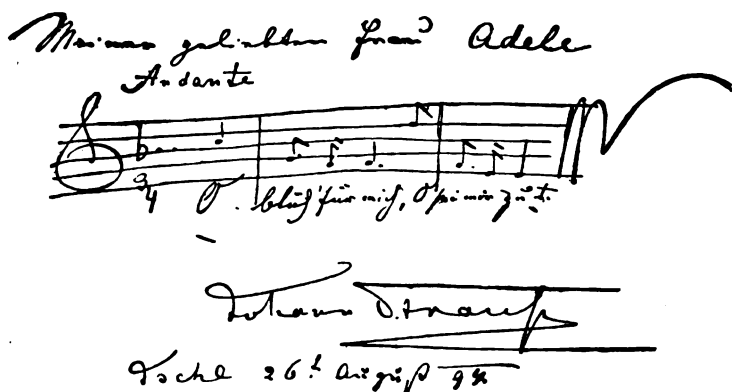 Meiner geliebten Frau Adele
Andante
3/4
O blüh' für mich, O sei mir gut.
Johann Strauß
Ischl 26t August